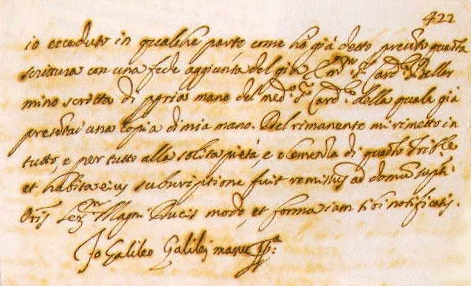 422
io ecceduto in qualche parte come ho già detto presento questa
scrittura con una fede aggiunta del già Emin.mo S.r Card.le Bellar
mino scritta di propria mano del med.o S.r Card.le della quale già
presentai una copia di mia mano. Del rimanente mi rimetto in
tutto, e per tutto alla solita pietà e clemenza di questo Trib.le
et habita eius subscriptione fuit remissus ad domum supra.ti
Oris Ser.mi Magni Ducis modo, et forma iam sibi notificatis.
Io Galileo Galilei manu pp.a